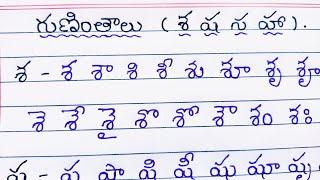 గుణింతాలు ( శ ష స హా ).
శ - శ శా శి శీ శు శూ శృ శౄ
శె శే శై శొ శో శౌ శం శః
ష - ష షా షి షీ షు షూ షృ